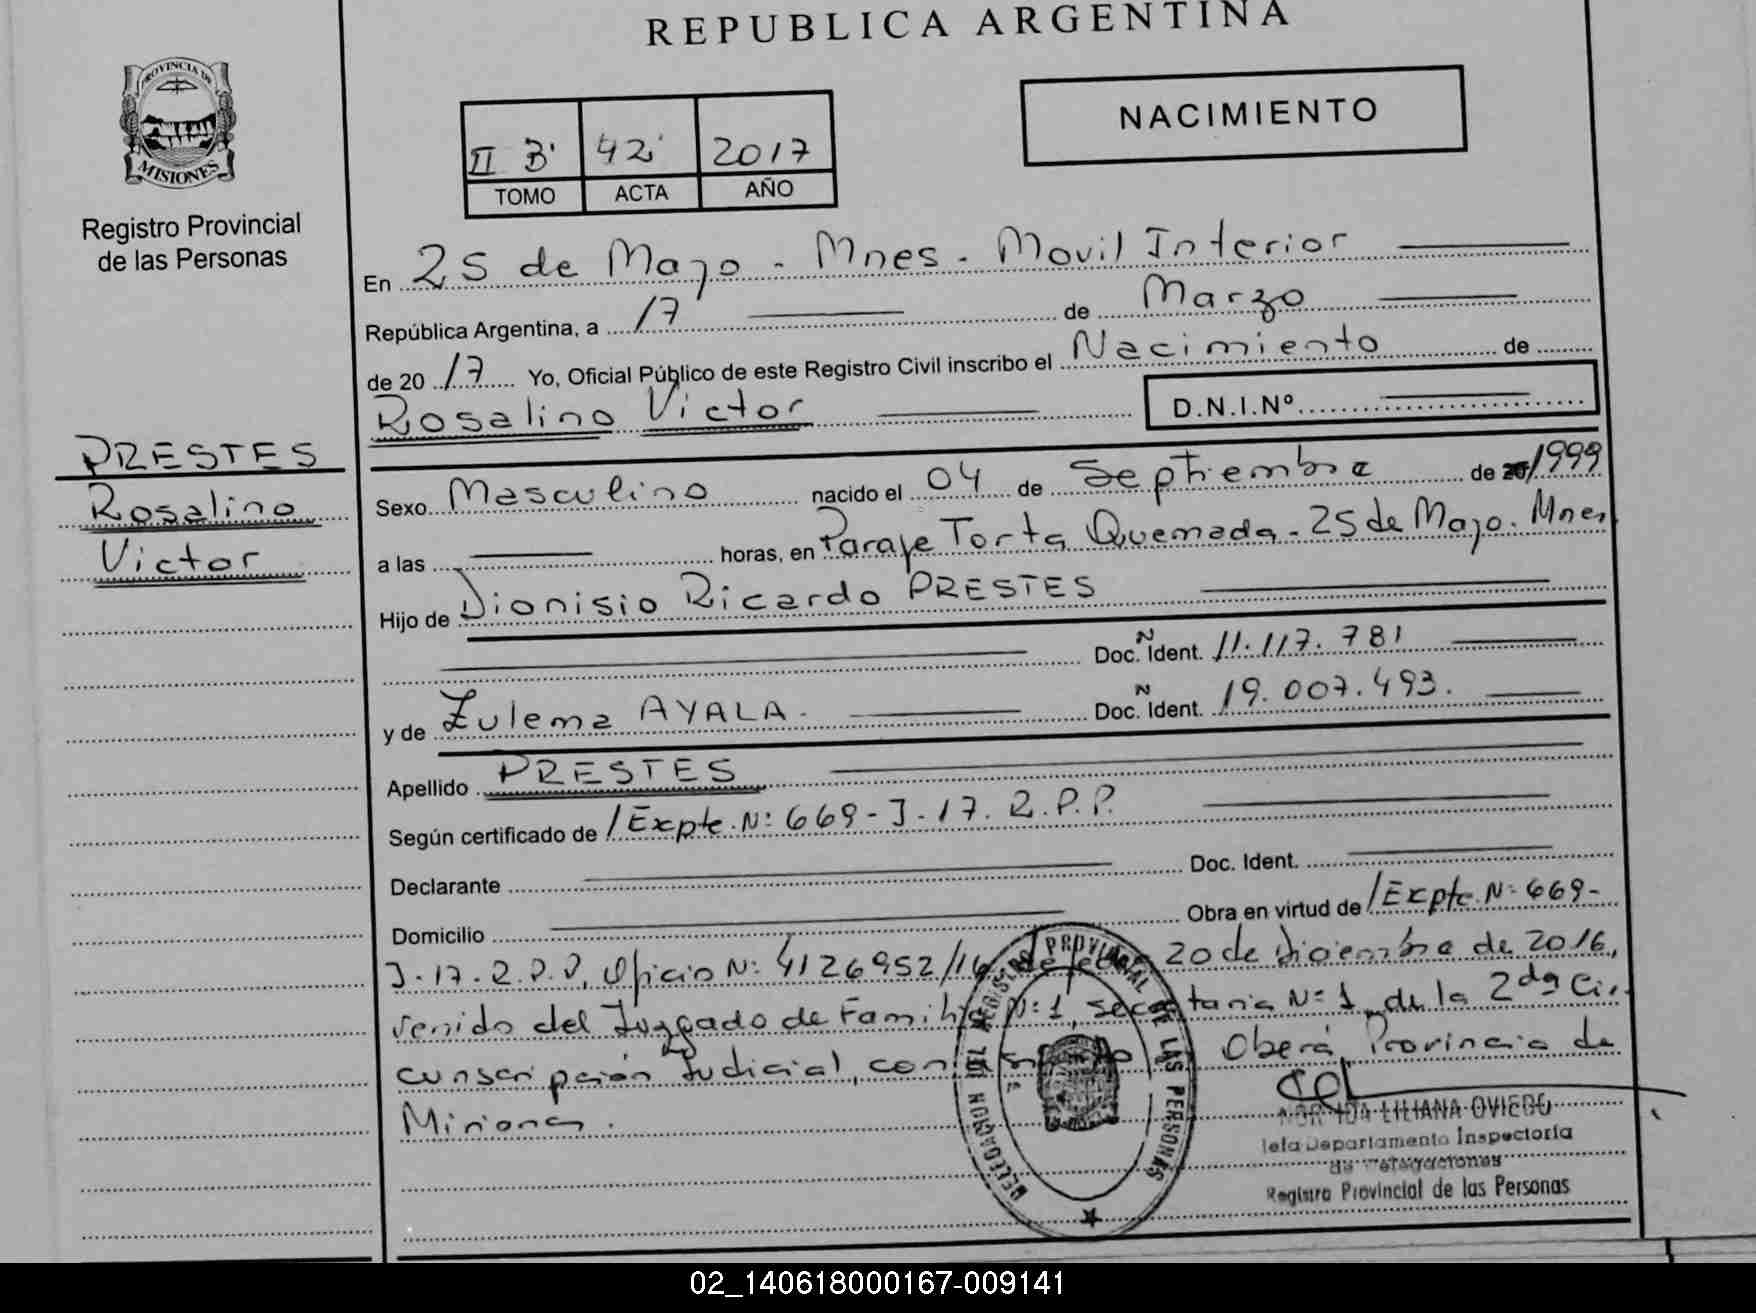 REPUBLICA ARGENTINA
PROVINCIA DE
MISIONES
Registro Provincial
de las Personas
II B 42 2017
TOMO ACTA AÑO
NACIMIENTO
En 25 de Mayo - Mnes - Movil Interior
República Argentina, a 17 de Marzo
de 20 17 Yo, Oficial Público de este Registro Civil inscribo el Nacimiento de
Rosalino Victor D.N.I.Nº
PRESTES
Rosalino
Victor
Sexo Masculino nacido el 04 de Septiembre de 20/1999
a las horas, en Paraje Torta Quemada - 25 de Mayo. Mnes
Hijo de Dionisio Ricardo PRESTES
Doc. Ident. 11.117.781
y de Zulema AYALA. Doc. Ident. 19.007.493.
Apellido PRESTES
Según certificado de /Expte. Nº 669-J-17. R.P.P.
Declarante Doc. Ident.
Domicilio Obra en virtud de /Expte. Nº 669-
J-17-R.P.P, Oficio Nº 4126952/16 de 20 de diciembre de 2016,
venido del Juzgado de Familia Nº 1, secretaria Nº 1 de la 2da Cir-
cunscripción Judicial, con Oberá Provincia de
Misiones.
DELEGACION DEL REGISTRO PROVINCIAL DE LAS PERSONAS
LILIANA OVIEDO
Jefa Departamento Inspectoría
de Delegaciones
Registro Provincial de las Personas
02_140618000167-009141